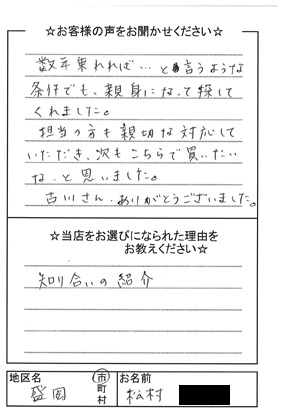 ☆お客様の声をお聞かせください☆
数年乗れれば…と言うような
条件でも、親身になって探して
くれました。
担当の方も親切な対応して
いただき、次もこちらで買いたい
な、と思いました。
古川さん、ありがとうございました。
☆当店をお選びになられた理由を
お教えください☆
知り合いの紹介
地区名 市町村 お名前
盛岡 松村